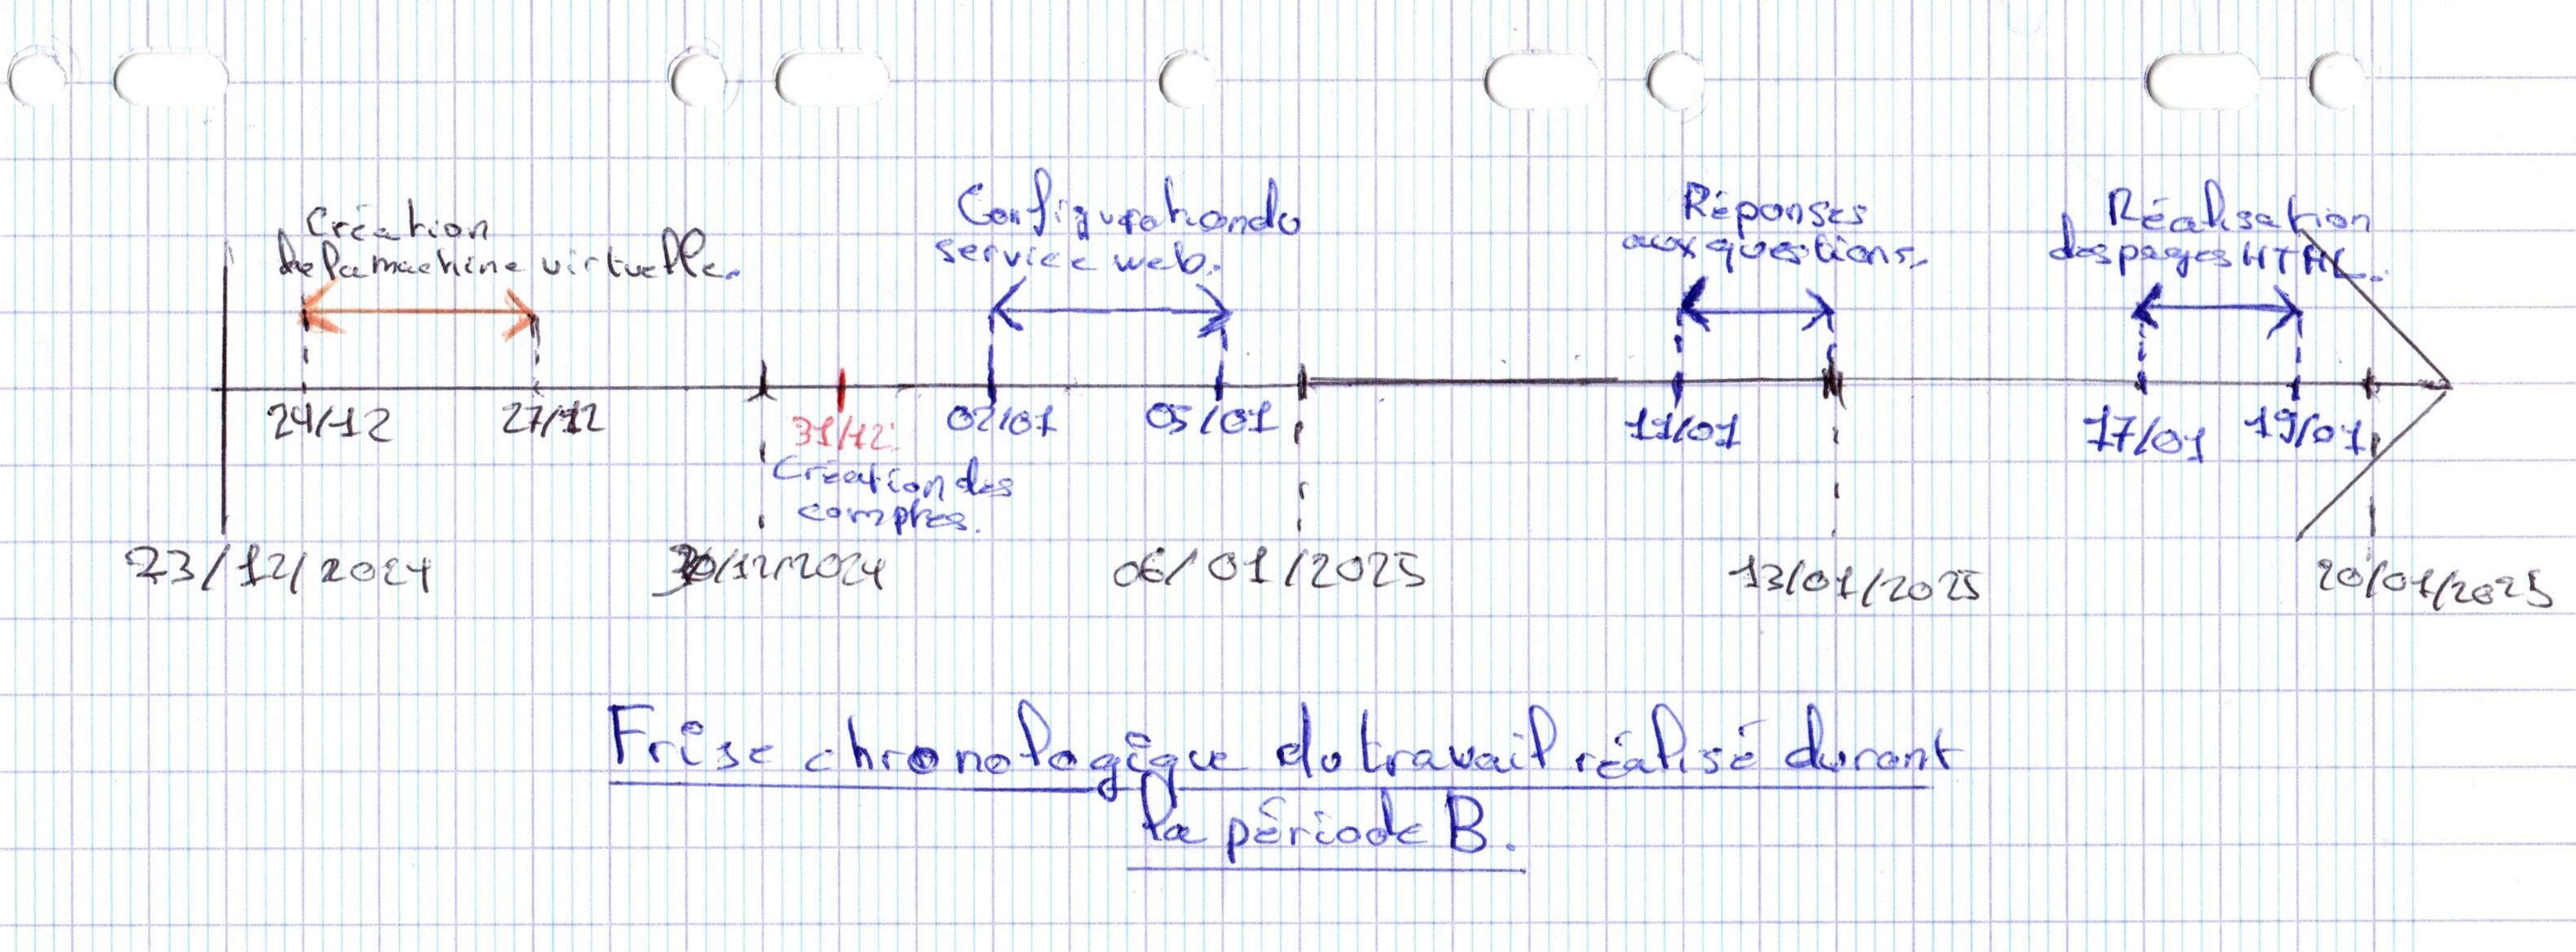 Création
de la machine virtuelle.
Configuration du
service web.
Réponses
aux questions.
Réalisation
des pages HTML.
24/12
27/12
31/12:
Création des
comptes.
02/01
05/01
11/01
17/01
19/01
23/12/2024
30/12/2024
06/01/2025
13/01/2025
20/01/2025
Frise chronologique du travail réalisé durant
la période B.